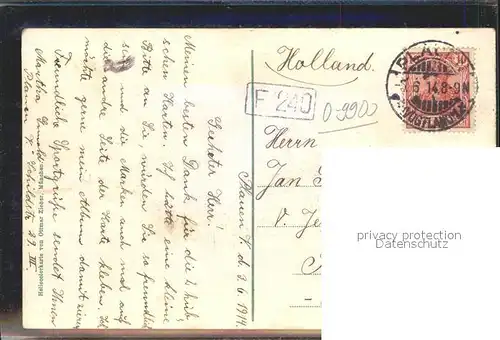 Plauen V. d. 3. 6. 1914.
Geehrter Herr!
Meinen besten Dank für die 2 hüb-
schen Karten. Ich hätte eine kleine
Bitte an Sie, würden Sie so freundlich
sein und die Marken auch mal auf
die andre Seite der Karte kleben. Ich
möchte gerne mein Album damit zieren.
Freundliche Sportgrüße sendet Ihnen
Martha
Plauen V. Schildstr. 29. III.
Holland.
F 240
0-990
PLAUEN
6.14.8-9N
(VOGTLAND)
Herrn
Jan
V. Je
privacy protection
Datenschutz